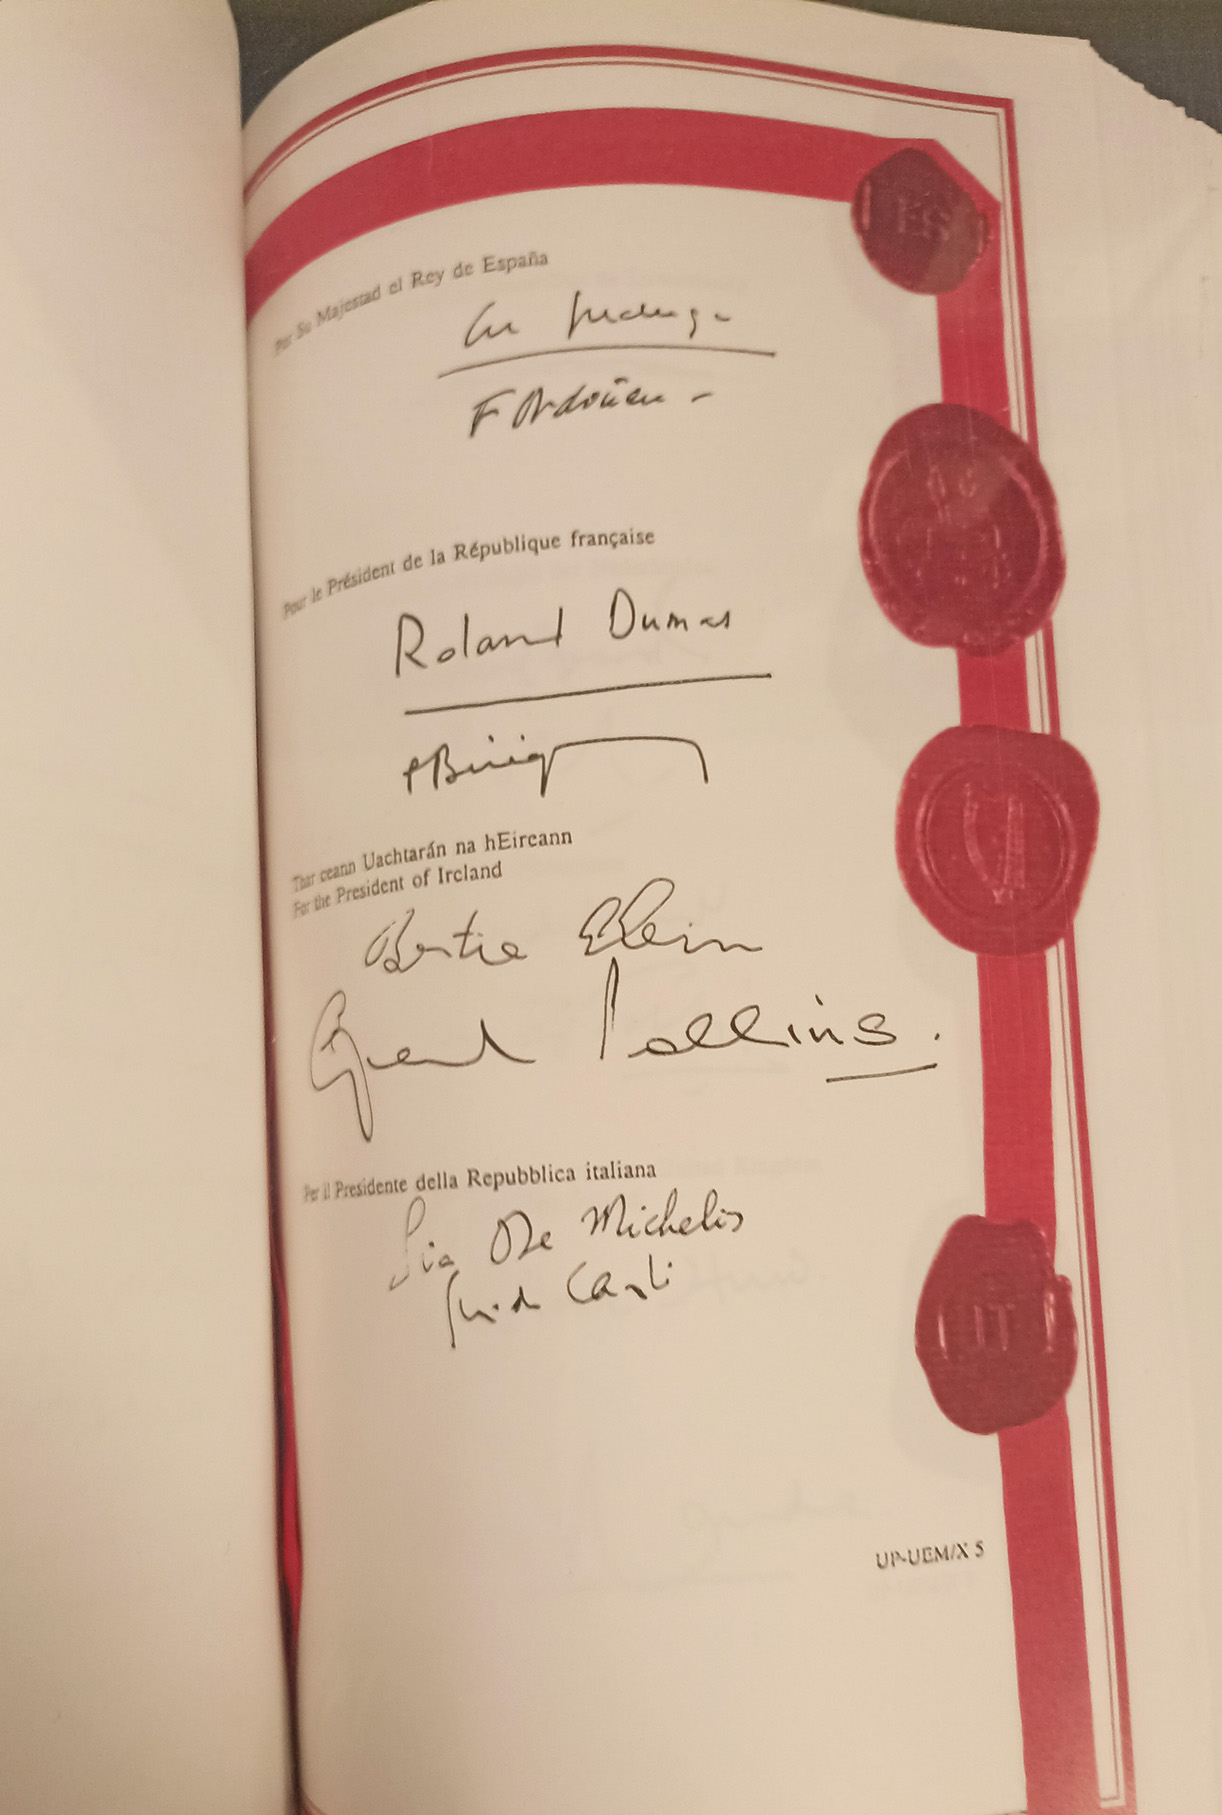 Por Su Majestad el Rey de España
F Ordóñez
Pour le Président de la République française
Roland Dumas
PBérégovoy
Thar ceann Uachtarán na hEireann
For the President of Ireland
Bertie Ahern
Gerard Collins.
Per il Presidente della Repubblica italiana
De Michelis
Guido Carli
UP-UEM/X 5
ES
IT